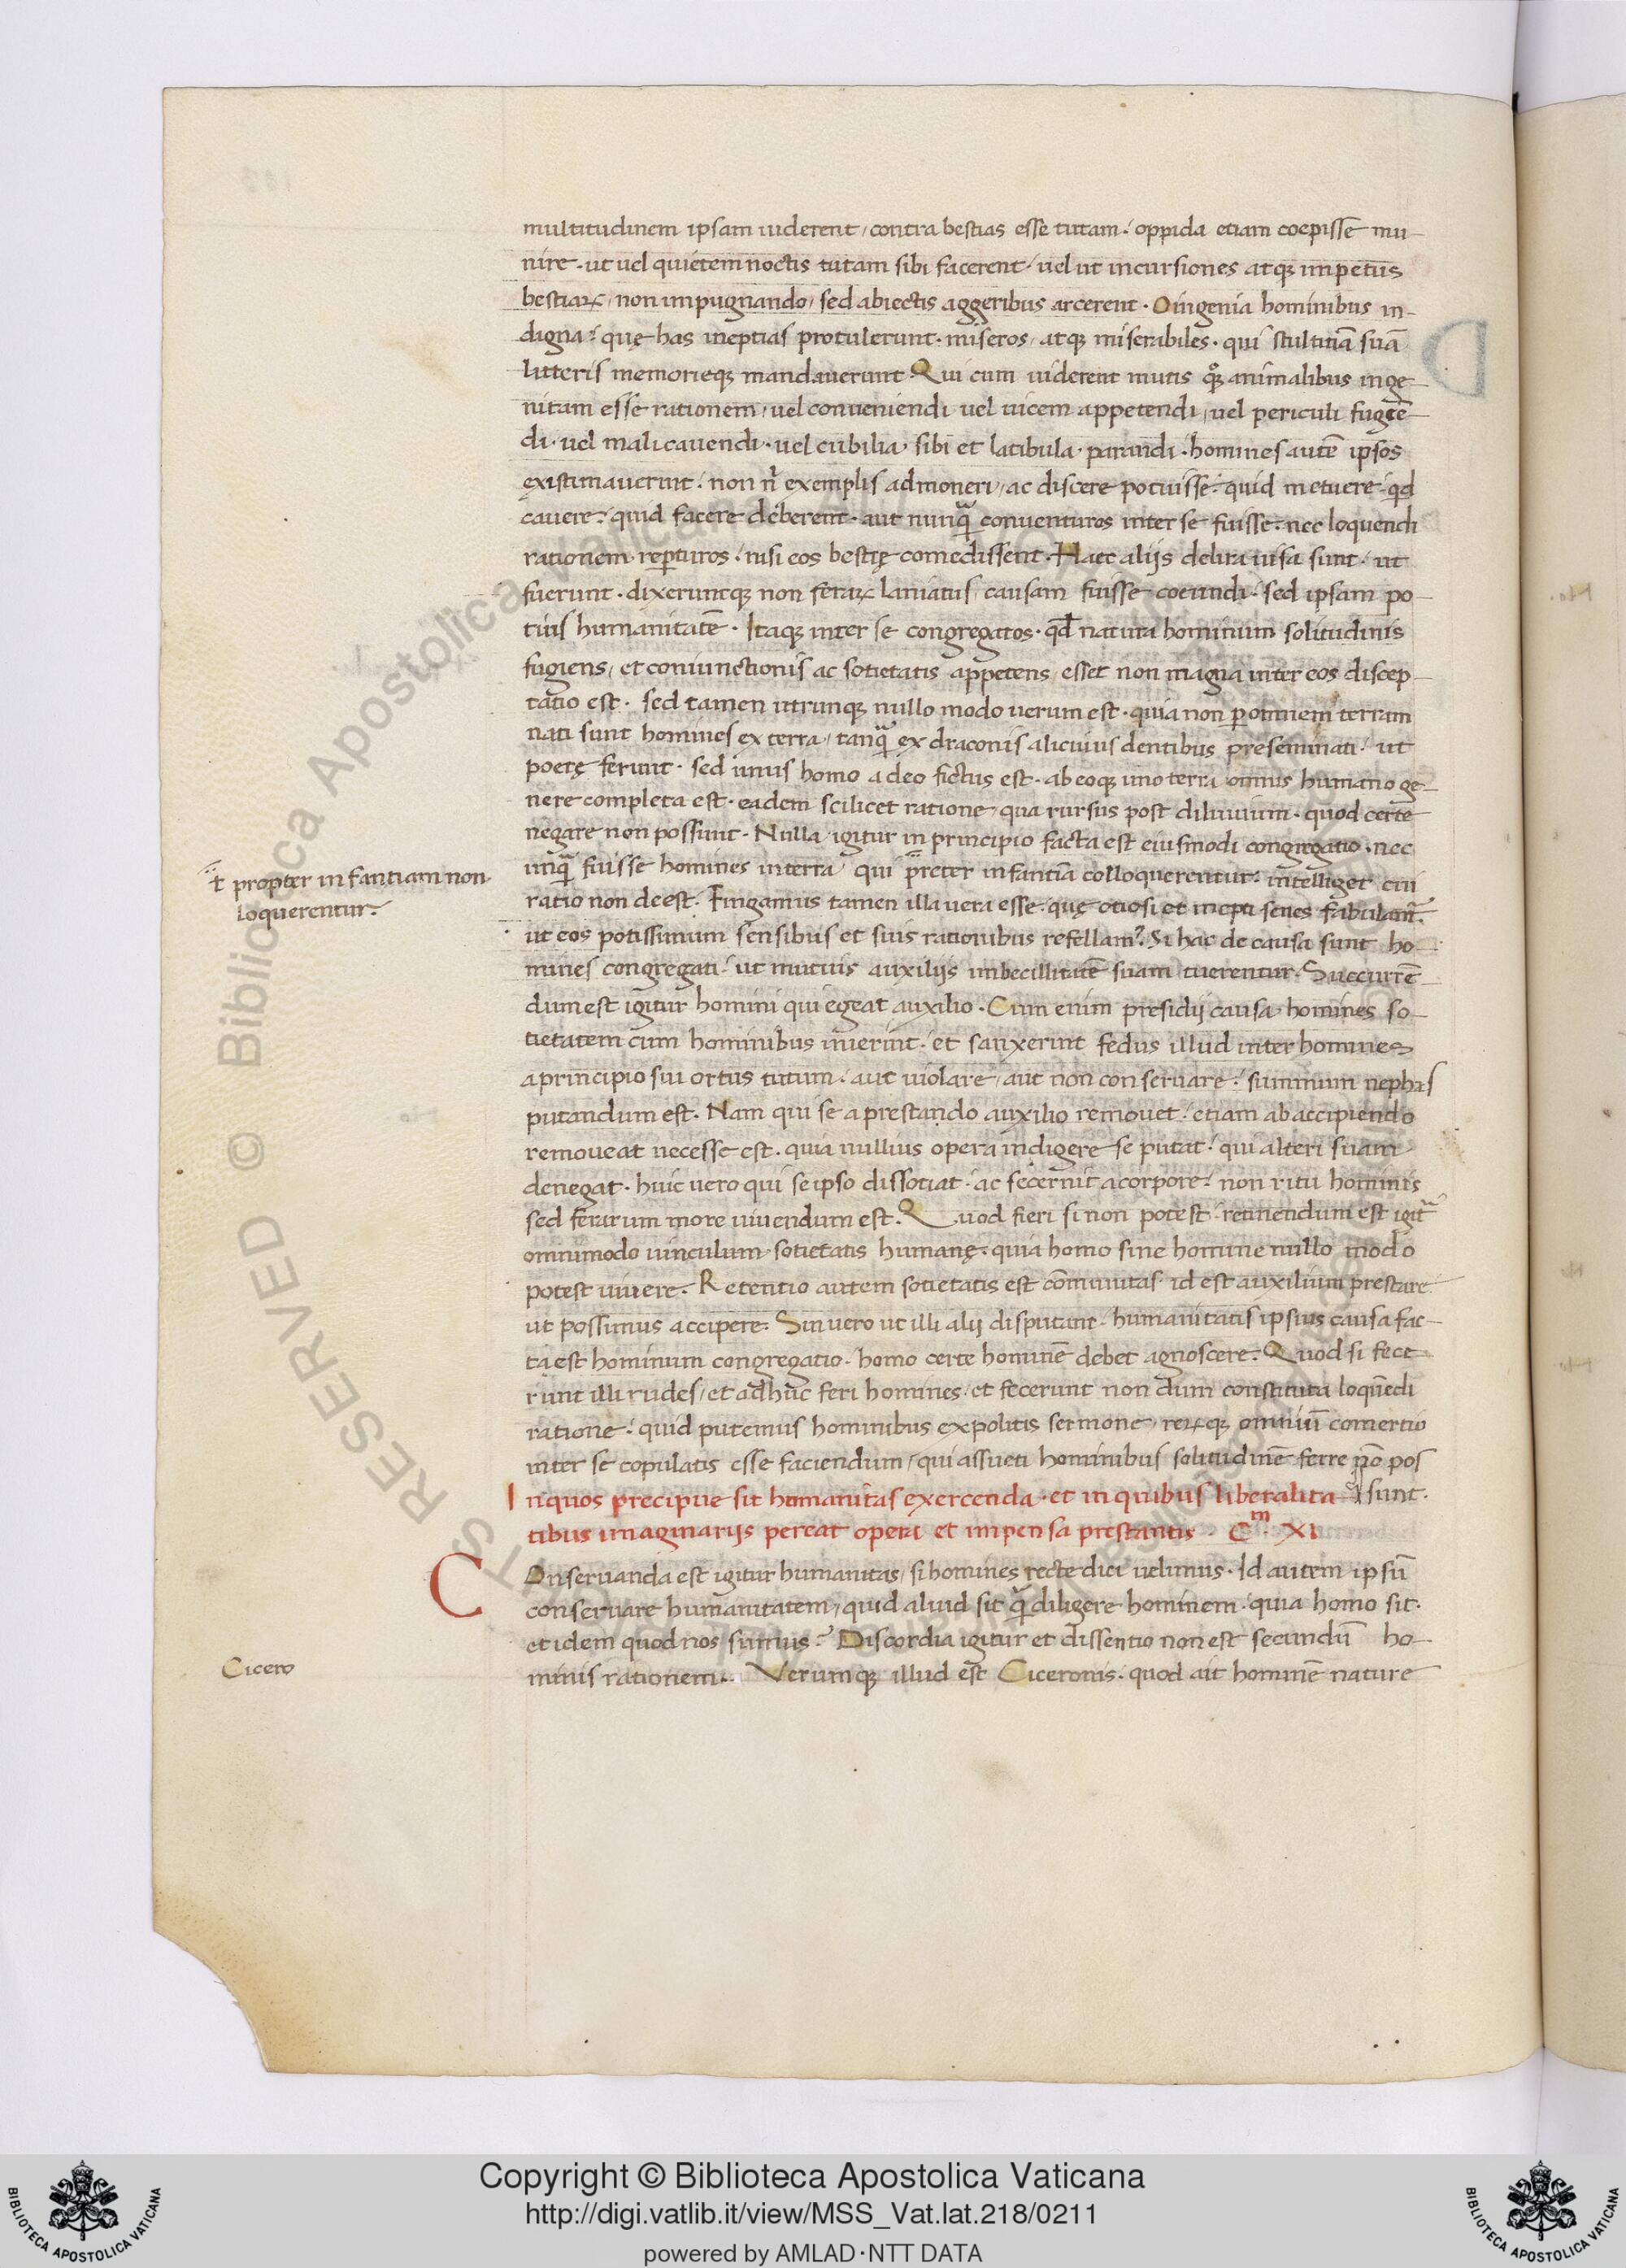 multitudinem ipsam uiderent, contra bestias esse tutam. oppida etiam coepisse mu-
nire. ut uel quietem noctis tutam sibi facerent. uel ut incursiones atqꝫ impetus
bestiaꝝ, non impugnando, sed abiectis aggeribus arcerent. O ingenia hominibus in-
digna. quę has ineptias protulerunt. miseros, atqꝫ miserabiles. qui stultitiā suā
litteris memorieqꝫ mandauerunt. Qui cum uiderent mutis qꝫ animalibus inge-
nitam esse rationem, uel conueniendi uel uicem appetendi, uel periculi fugiē-
di. uel mali cauendi. uel cubilia sibi et latibula parandi. homines autē ipsos
ęxistimauerint. non nī exemplis admoneri, ac discere potuisse. quid metuere. qd
cauere. quid facere deberent. aut nunq̄ conuenturos inter se fuisse. nec loquendi
rationem repturos. nisi eos bestię comedissent. Haec aliis delira uisa sunt. ut
fuerunt. dixeruntqꝫ non feraꝝ laniatus causam fuisse coeundi. sed ipsam po-
tius humanitatē. Itaqꝫ inter se congregatos. qd natura hominum solitudinis
fugiens, et coniunctionis ac sotietatis appetens esset non magna inter eos discep-
tatio est. sed tamen utrunqꝫ nullo modo uerum est. quia non ꝑ omnem terram
nati sunt homines ex terra, tanq̄ ex draconis alicuius dentibus preseminati. ut
poetę ferunt. sed unus homo a deo fictus est. ab eoqꝫ uno terra omnis humano ge-
nere completa est. eadem scilicet ratione, qua rursus post diluuium. quod certe
negare non possunt. Nulla igitur in principio facta est eiusmodi congregatio. nec
unq̄ fuisse homines in terra qui preter infantiā colloquerentur. intelliget cui
ł propter infantiam non
loquerentur.
ratio non deest. Fingamus tamen illa uera esse. quę otiosi et inepti senes fabulant̄.
ut eos potissimum sensibus et suis rationibus refellam. Si hac de causa sunt ho-
mines congregati. ut mutuis auxiliis imbecillitatē suam tuerentur. Succurrē-
dum est igitur homini qui egeat auxilio. Cum enim presidii causa homines so-
tietatem cum hominibus inierint. et sanxerint fedus illud inter homines
a principio sui ortus tutum. aut uiolare, aut non conseruare. summum nephas
putandum est. Nam qui se a prestando auxilio remouet. etiam ab accipiendo
remoueat necesse est. quia nullius opera indigere se putat. qui alteri suam
denegat. huic uero qui se ipso dissotiat. ac secernit a corpore. non ritu hominis
sed ferarum more uiuendum est. Quod fieri si non potest. retinendum est igit̄
omnimodo uinculum sotietatis humanę. quia homo sine homine nullo modo
potest uiuere. Retentio autem sotietatis est cōmunitas. id est auxilium prestare
ut possimus accipere. Sin uero ut illi alii disputant. humanitatis ipsius causa fac-
ta est hominum congregatio. homo certe hominē debet agnoscere. Quod si fece
runt illi rudes, et adhuc feri homines. et fecerunt non dum constituta loquēdi
ratione. quid putemus hominibus expolitis sermone, reꝝqꝫ omniū comertio
inter se copulatis esse faciendum, qui assueti hominibus solitudinē ferre nō pos
sunt.
In quos precipue sit humanitas exercenda. et in quibus liberalita
tibus imaginariis pereat opera et impensa prestantis. Cm. XI
COnseruanda est igitur humanitas, si homines recte dici uelimus. Id autem ipsū
conseruare humanitatem, quid aliud sit q̄ diligere hominem. quia homo sit.
et idem quod nos sumus? Discordia igitur et dissentio non est secundū ho-
Cicero
minis rationem. Verumqꝫ illud est Ciceronis. quod ait hominē nature
D
Copyright © Biblioteca Apostolica Vaticana
http://digi.vatlib.it/view/MSS_Vat.lat.218/0211
powered by AMLAD·NTT DATA
BIBLIOTECA APOSTOLICA VATICANA
BIBLIOTECA APOSTOLICA VATICANA